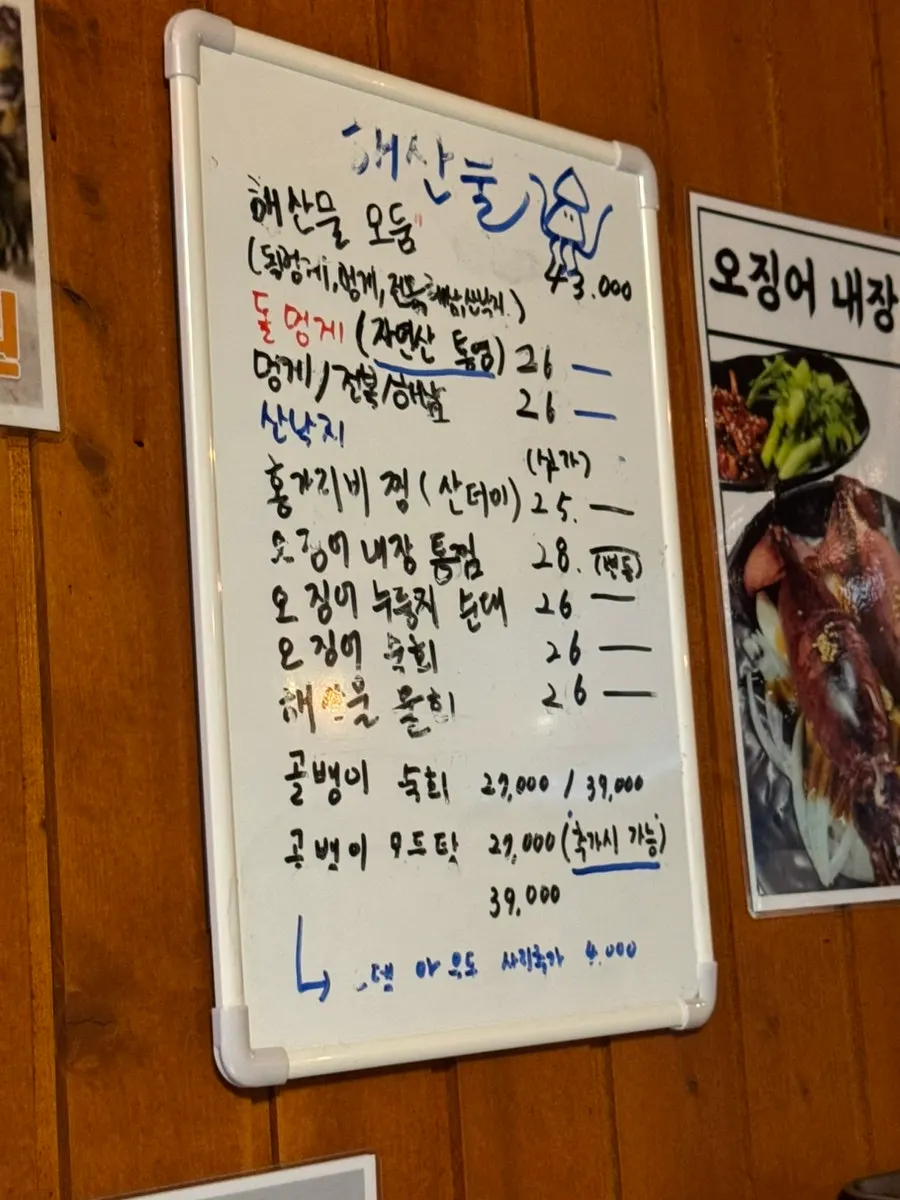 해산물
해산물 모둠
43.000
(돌멍게, 멍게, 전복, 해삼, 산낙지.)
돌멍게 (자연산 통영) 26 —
멍게/전복/해삼 26 —
산낙지
(싯가)
홍가리비 찜 (산더미) 25. —
오징어 내장 통찜 28. (변동)
오징어 누룽지 순대 26 —
오징어 숙회 26 —
해산물 물회 26 —
골뱅이 숙회 27,000 / 39,000
골뱅이 모드탕 27,000 (추가시 가능)
39,000
사리추가 4.000
오징어 내장